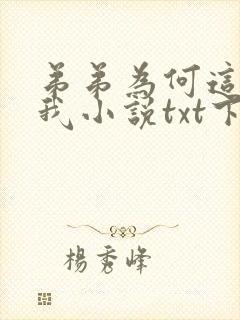 弟弟為何這
我小說txt下
楊秀峰